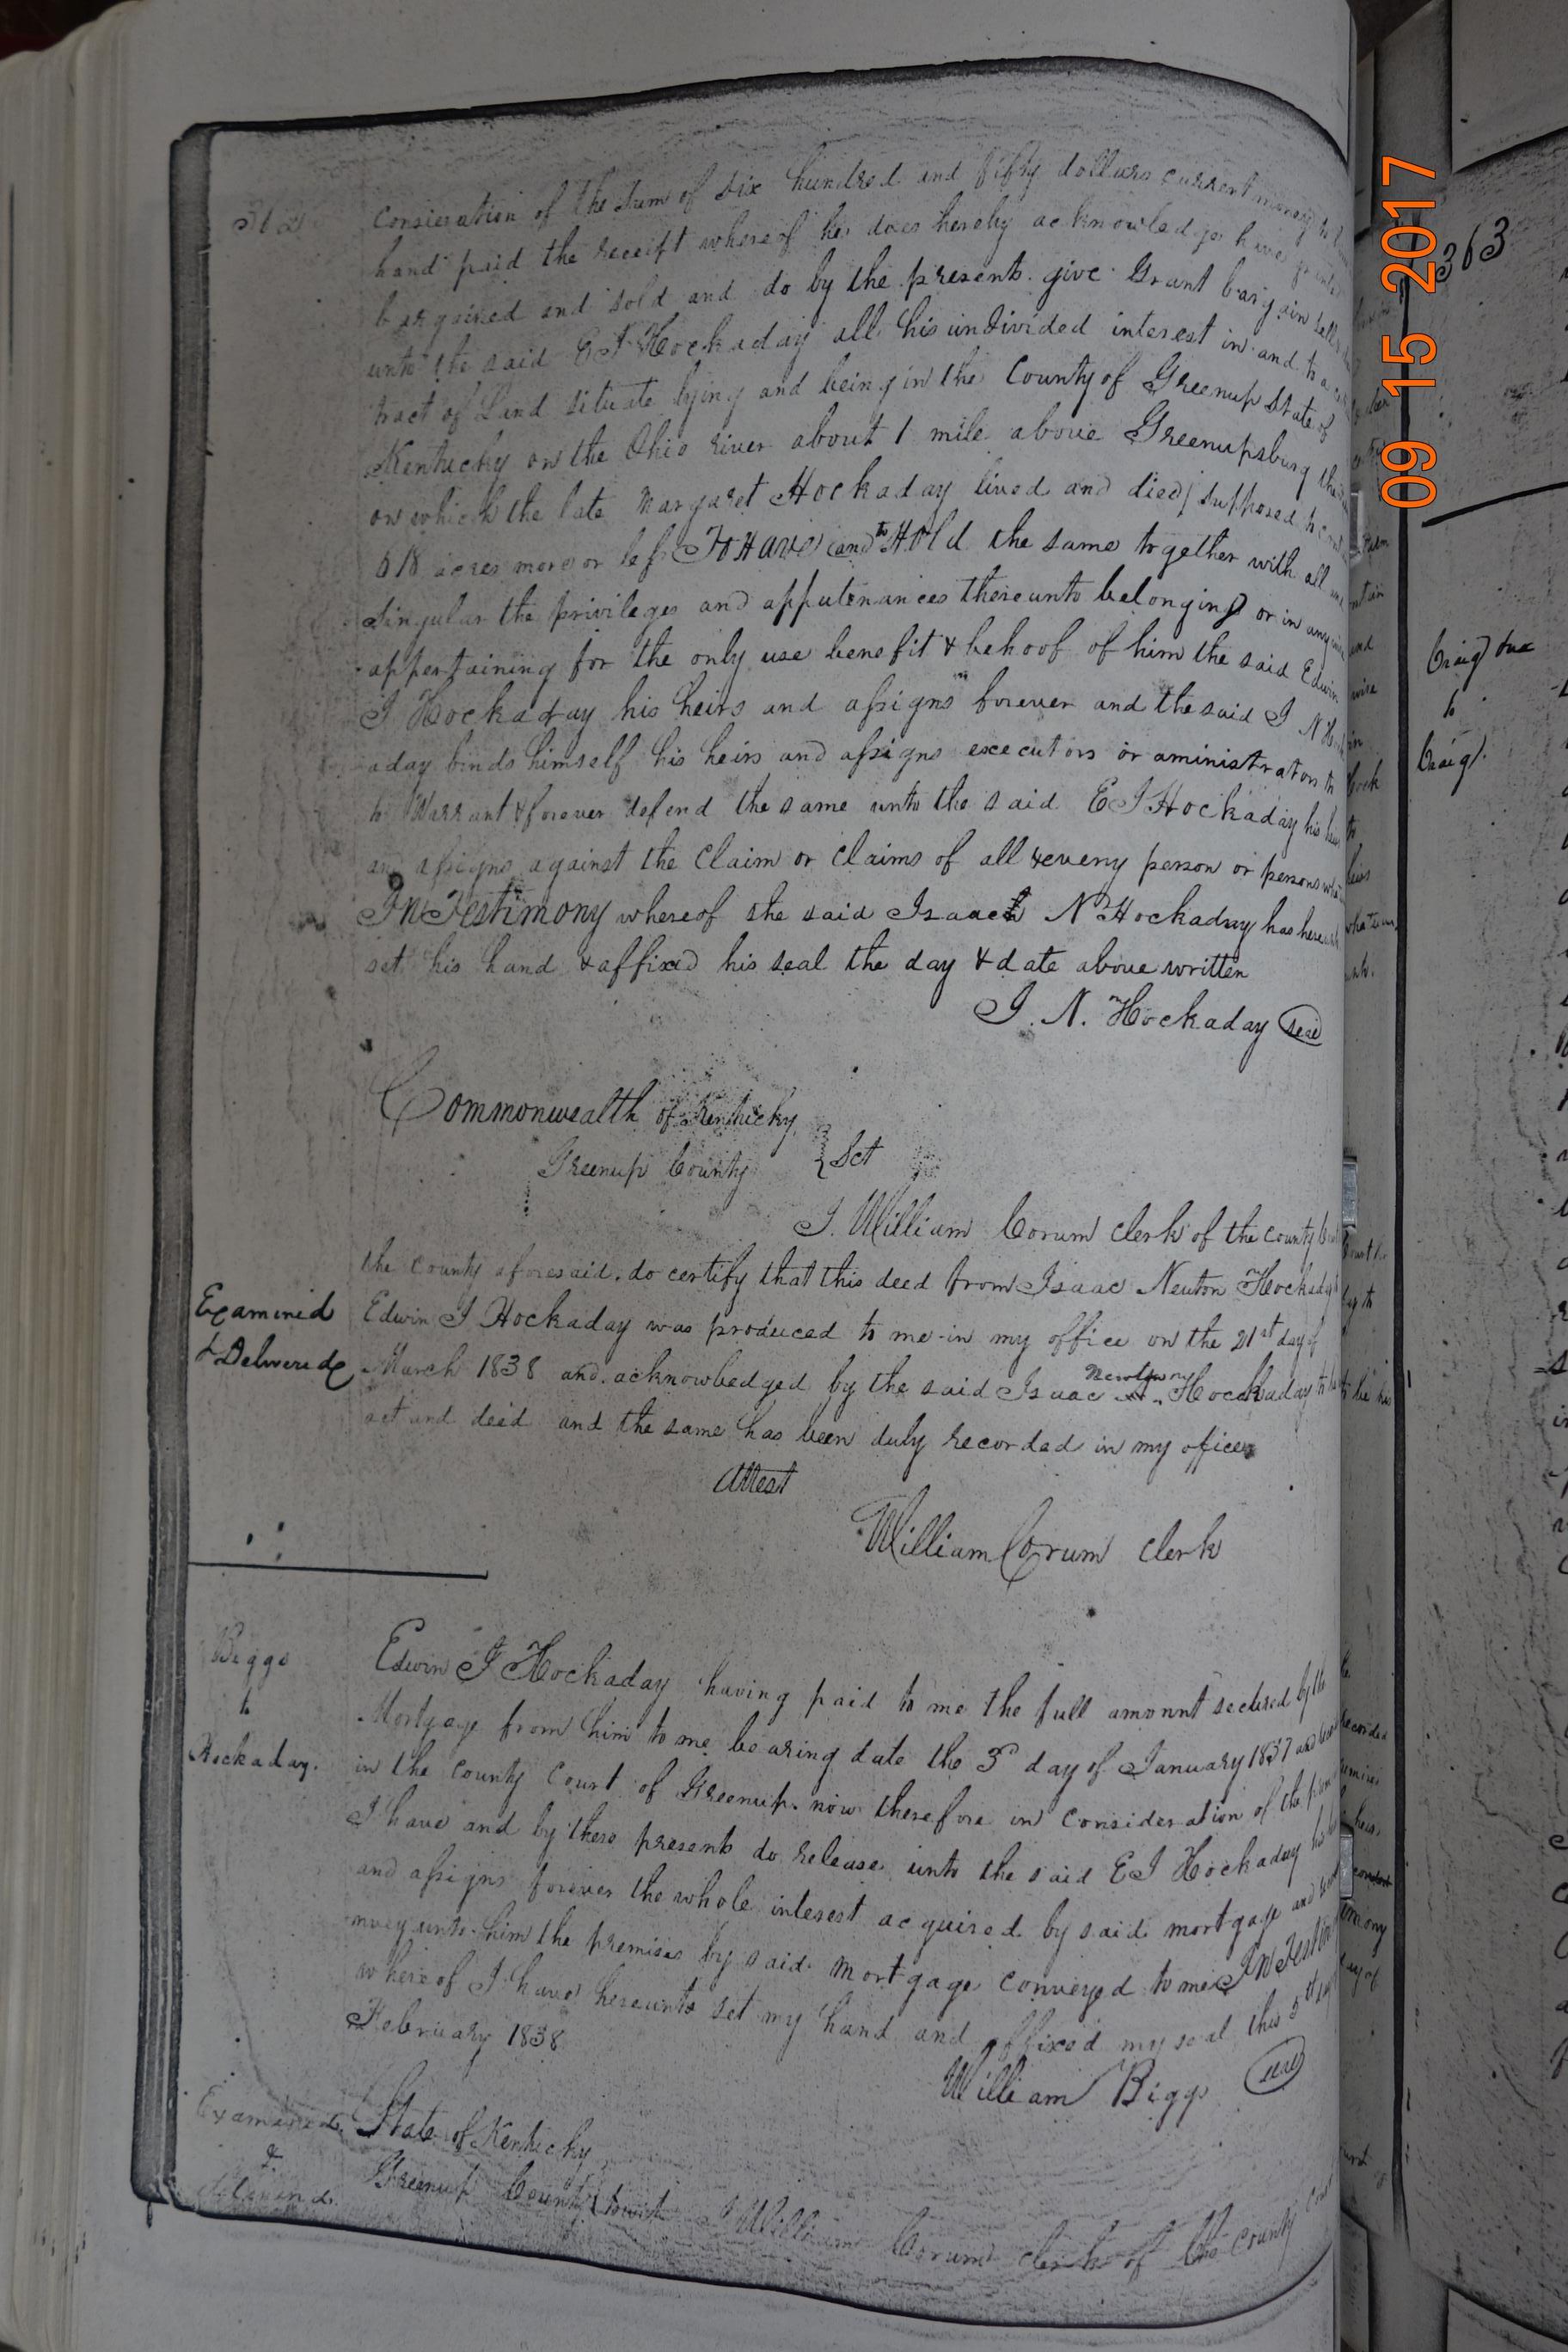 362
Consieration of the Sum of six hundred and fifty dollars current money to
hand paid the receipt whereof he does hereby acknowledge have
bargained and sold and do by the presents give Grant bargain sell
unto the said E I Hockaday all his undivided interest in and to a
tract of Land situate lying and being in the County of Greenup State of
Kentucky on the Ohio river about 1 mile above Greenupsburg the
on which the late Margaret Hockaday lived and died supposed to
618 acres more or less To Have and to Hold the same together with all and
Singular the privileges and apputenances thereunto belonging or in any
appertaining for the only use benefit & behoof of him the said Edwin
I Hockaday his heirs and assigns forever and the said I N
aday binds himself his heirs and assigns executors or aministrators to
to Warrant & forever defend the same unto the said E I Hockaday his
assigns against the Claim or Claims of all & every person or persons
In Testimony whereof the said Isaac N Hockaday has
set his hand & affixed his seal the day & date above written
I. N. Hockaday seal
Commonwealth of Kentucky
Greenup County } Sct
I. William Corum Clerk of the County
the County aforesaid. do certify that this deed from Isaac Newton Hockaday
Examined
& Delivered
Edwin I Hockaday was produced to me in my office on the 21st day of
March 1838 and acknowledged by the said Isaac Newton Hockaday to
act and deed and the same has been duly recorded in my office
Attest
William Corum Clerk
Biggs
to
Hockaday.
Edwin I Hockaday having paid to me the full amount secured by
Mortgage from him to me bearing date the 3d day of January 1837 and
in the County Court of Greenup. now therefore in Consideration of the
I have and by these presents do release unto the said E I Hockaday his
and assigns forever the whole interest acquired by said mortgage and
nvey unto him the premises by said Mortgage conveyed to me In Testimony
whereof I have hereunto set my hand and affixed my seal this 5th
February 1838
William Biggs seal
Examined
&
State of Kentucky
Greenup County I William Corum clerk of the County
363
Craig
to
Craig
09 15 2017